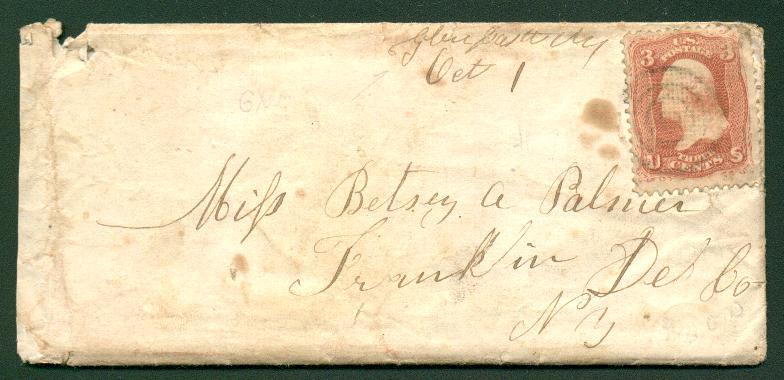 Glen Castle NY
Oct 1
3 U.S. 3
POSTAGE
U THREE S
CENTS
Miſs Betsey A Palmer
Franklin Del Co
N Y